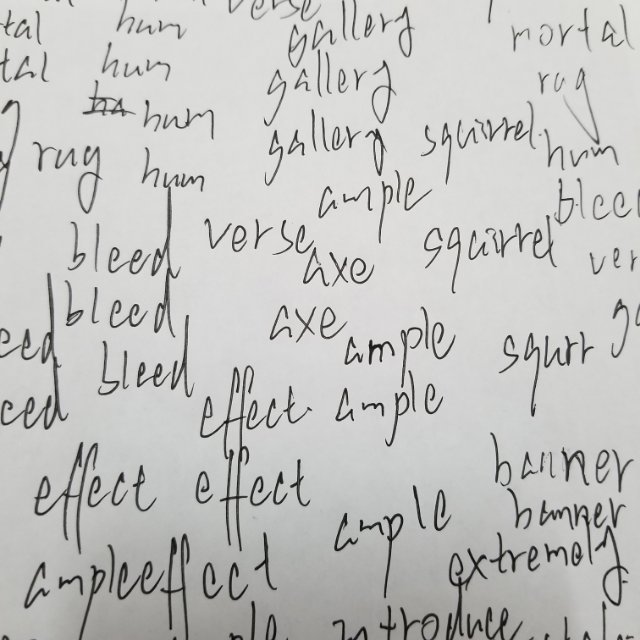 verse
tal hum gallery mortal
tal hum gallery rug
hum gallery squirrel hum
rug hum ample
bleed verse axe squirrel
bleed axe ample squrr
bleed effect ample
effect effect banner
ample banner
ampleeffect extremely
introduce